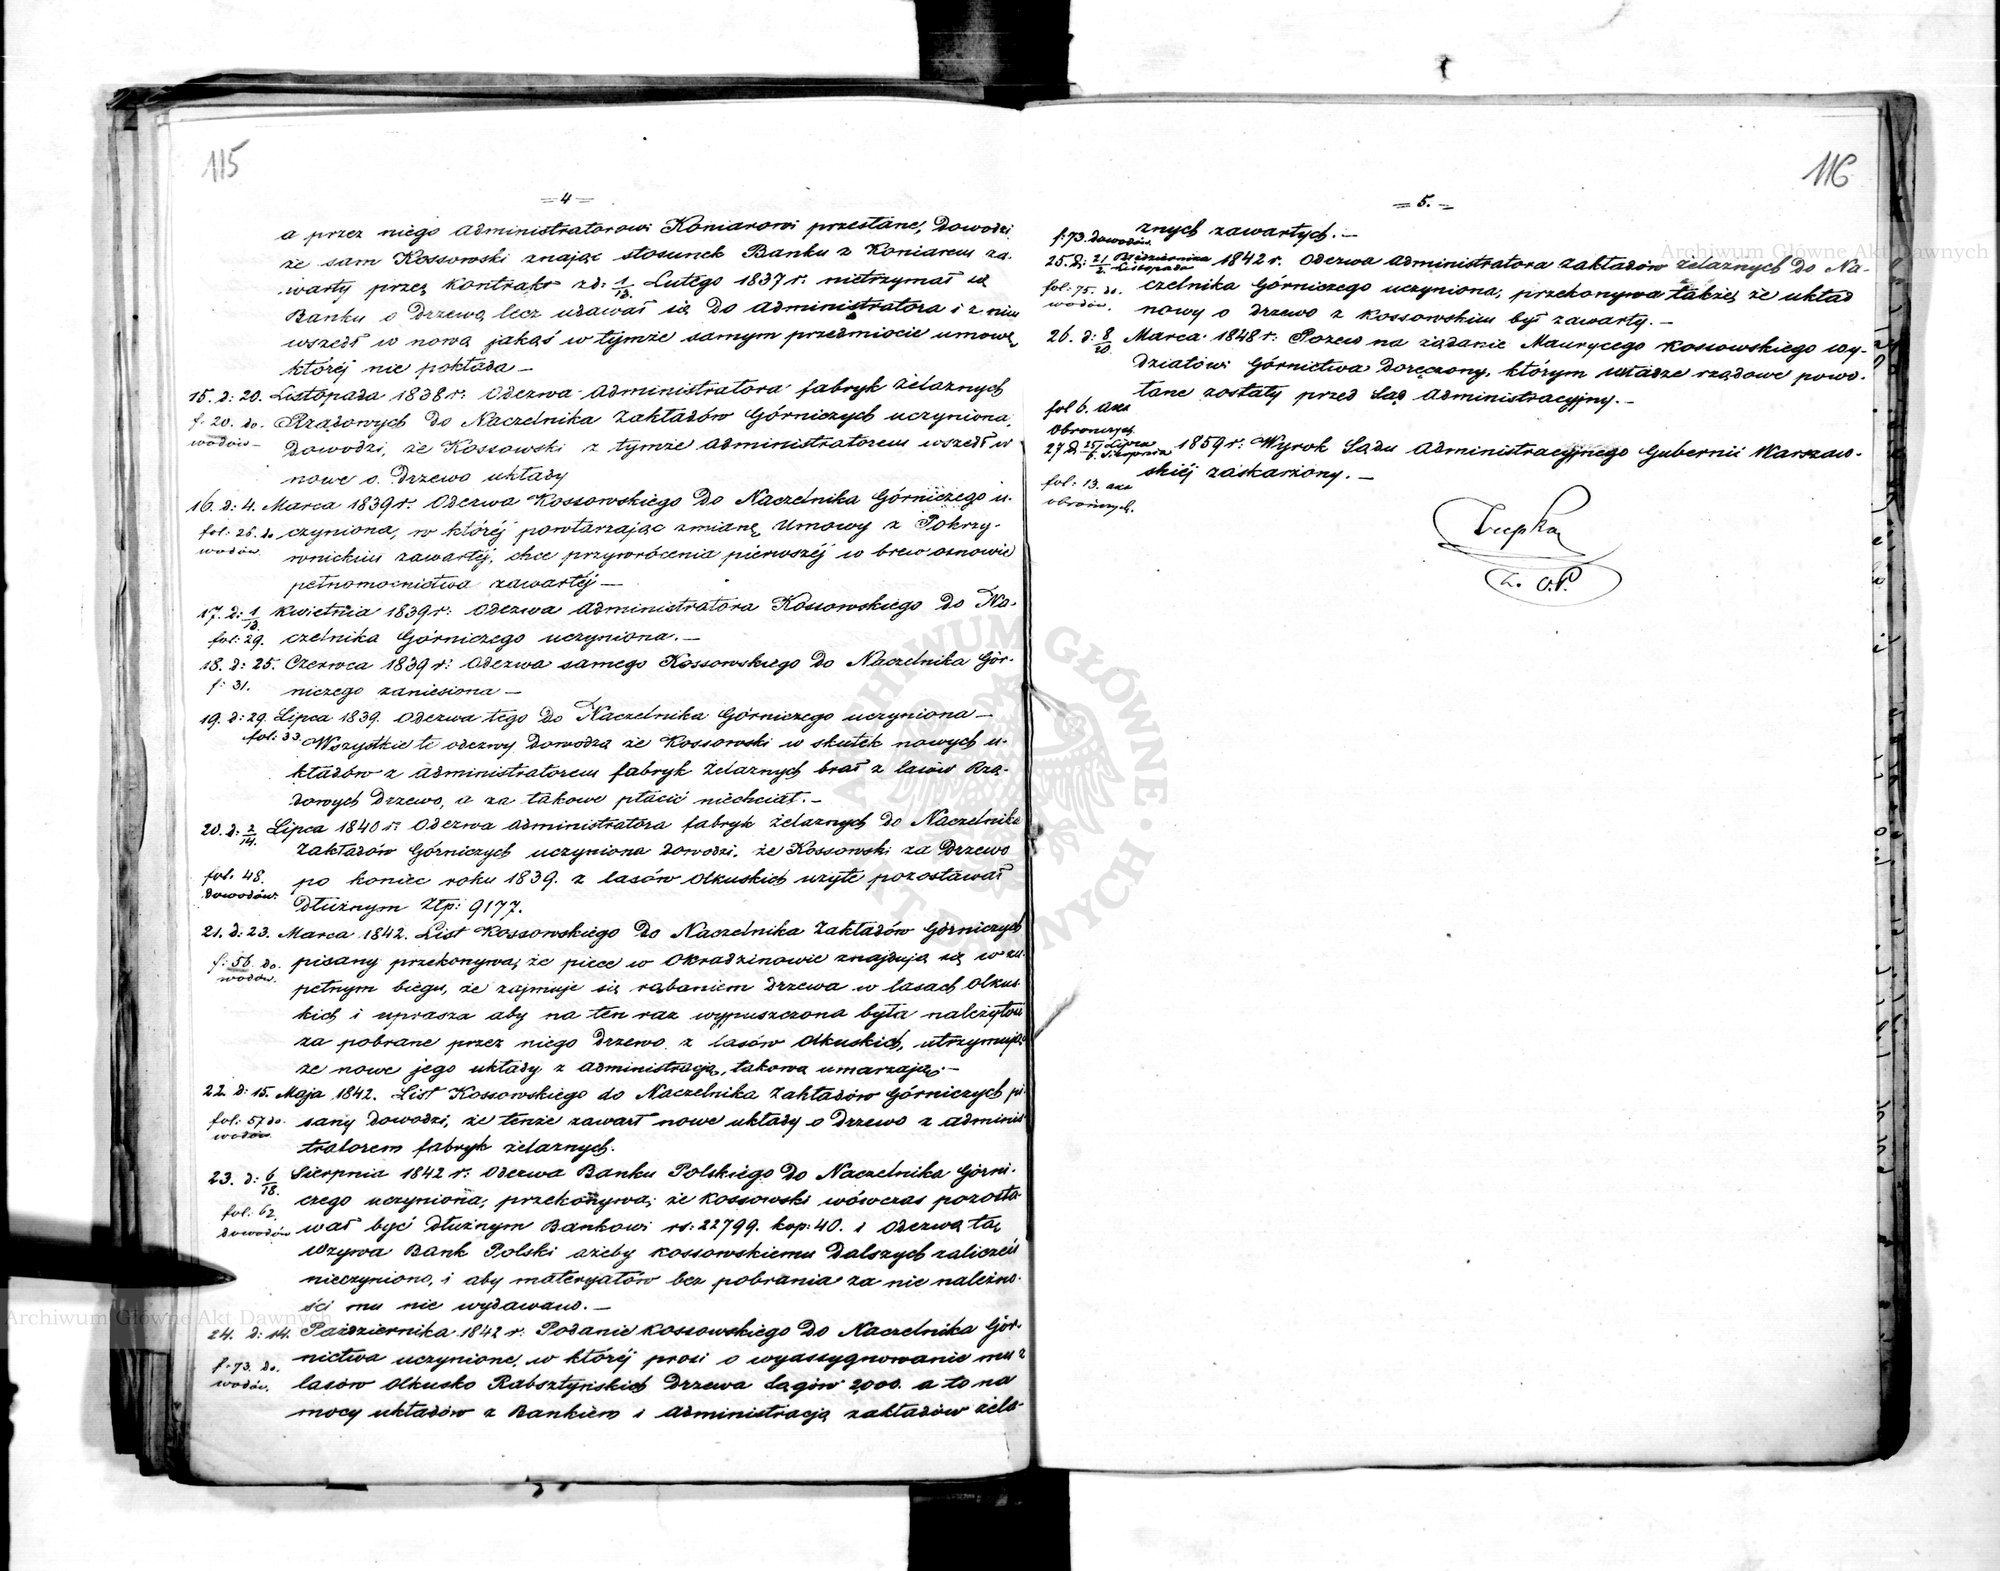 115
=4=
a przez niego Administratorowi Koniarowi przesłane, dowodzi
że sam Kossowski znając stosunek Banku z Koniarem za-
warty przez Kontrakt zd: 1/13. Lutego 1837 r: nietrzymał się
Banku o drzewo, lecz udawał się do Administratora i z nim
wszedł w nową jakąś w tymże samym przedmiocie umowę,
której nie pokłada —
15. d: 20. Listopada 1838 r: Odezwa Administratora fabryk żelaznych
f: 20. do- Rządowych do Naczelnika Zakładów Górniczych uczyniona,
wodów — dowodzi, że Kossowski z tymże Administratorem wszedł w
nowe o drzewo układy
16. d: 4. Marca 1839 r: Odezwa Kossowskiego do Naczelnika Górniczego u-
fol: 26. do czyniona, w której powtarzając zmianę Umowy z Pokrzy-
wodów. wnickim zawartej, chce przywrócenia pierwszéj w brew osnowie
pełnomocnictwa zawartéj —
17. d: 1/13. Kwietnia 1839 r: Odezwa Administratora Kossowskiego do Na-
fol: 29. czelnika Górniczego uczyniona. —
18. d: 25. Czerwca 1839 r: Odezwa samego Kossowskiego do Naczelnika Gór-
f: 31. niczego zaniesiona —
19. d: 29. Lipca 1839. Odezwa tego do Naczelnika Górniczego uczyniona —
fol: 33. Wszystkie te odezwy dowodzą że Kossowski w skutek nowych u-
kładów z Administratorem fabryk żelaznych brał z lasów Rzą-
dowych drzewo, a za takowe płacić niechciał. —
20. d: 2/14. Lipca 1840 r: Odezwa Administratora fabryk żelaznych do Naczelnika
Zakładów Górniczych uczyniona dowodzi, że Kossowski za drzewo
fol. 48. po koniec roku 1839. z lasów Olkuskich użyte pozostawał
dowodów. dłużnym złp: 9177.
21. d: 23. Marca 1842. List Kossowskiego do Naczelnika Zakładów Górniczych
f: 56. do- pisany przekonywa, że piece w Okradzinowie znajdują się w zu-
wodów. pełnym biegu, że zajmuje się rąbaniem drzewa w lasach Olkus-
kich i uprasza aby na ten raz wypuszczona była należytość
za pobrane przez niego drzewo z lasów Olkuskich, utrzymując
że nowe jego układy z Administracją, takową umarzają. —
22. d: 15. Maja 1842. List Kossowskiego do Naczelnika Zakładów Górniczych pi-
fol: 57 do- sany dowodzi, że tenże zawarł nowe układy o drzewo z Adminis-
wodów tratorem fabryk żelaznych.
23. d: 6/18. Sierpnia 1842 r: Odezwa Banku Polskiego do Naczelnika Górni-
czego uczyniona, przekonywa, że Kossowski wówczas pozosta-
fol: 62. wał być dłużnym Bankowi rs: 22799. kop: 40. i Odezwą tą
dowodów wzywa Bank Polski ażeby Kossowskiemu dalszych zaliczeń
nieczyniono, i aby materyałów bez pobrania za nie należno-
ści mu nie wydawano. —
24. d: 14. Października 1842 r: Podanie Kossowskiego do Naczelnika Gór-
f: 73. do- nictwa uczynione, w której prosi o wyassygnowanie mu z
wodów. lasów Olkusko Rabsztyńskich drzewa sągów 2,000. a to na
mocy układów z Bankiem i Administracją zakładów żela-
116
=5.=
f: 73. dowodów. znych zawartych. —
25. d: 21/2. Października/Listopada 1842 r. Odezwa Administratora Zakładów żelaznych do Na-
fol: 75. do- czelnika Górniczego uczyniona, przekonywa także, że układ
wodów. nowy o drzewo z Kossowskim był zawarty. —
26. d: 8/20. Marca 1848 r: Pozew na żądanie Maurycego Kossowskiego Wy-
działowi Górnictwa doręczony, którym władze rządowe powo-
łane zostały przed Sąd Administracyjny. —
fol 6. akt
obronczych
27 d: 25/6. Lipca/Sierpnia 1859 r: Wyrok Sądu Administracyjnego Gubernii Warszaw-
skiéj zaskarżony. —
fol: 13. akt
obrończych.
O.P.
Archiwum Główne Akt Dawnych
Archiwum Główne Akt Dawnych
ARCHIWUM GŁÓWNE AKT DAWNYCH